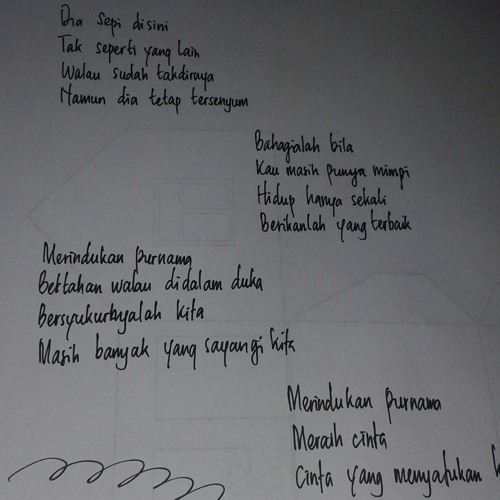 Dia sepi disini
Tak seperti yang lain
Walau sudah takdirnya
Namun dia tetap tersenyum
Bahagialah bila
Kau masih punya mimpi
Hidup hanya sekali
Berikanlah yang terbaik
Merindukan purnama
Bertahan walau didalam duka
Bersyukurlyalah kita
Masih banyak yang sayangi kita
Merindukan purnama
Meraih cinta
Cinta yang menyatukan